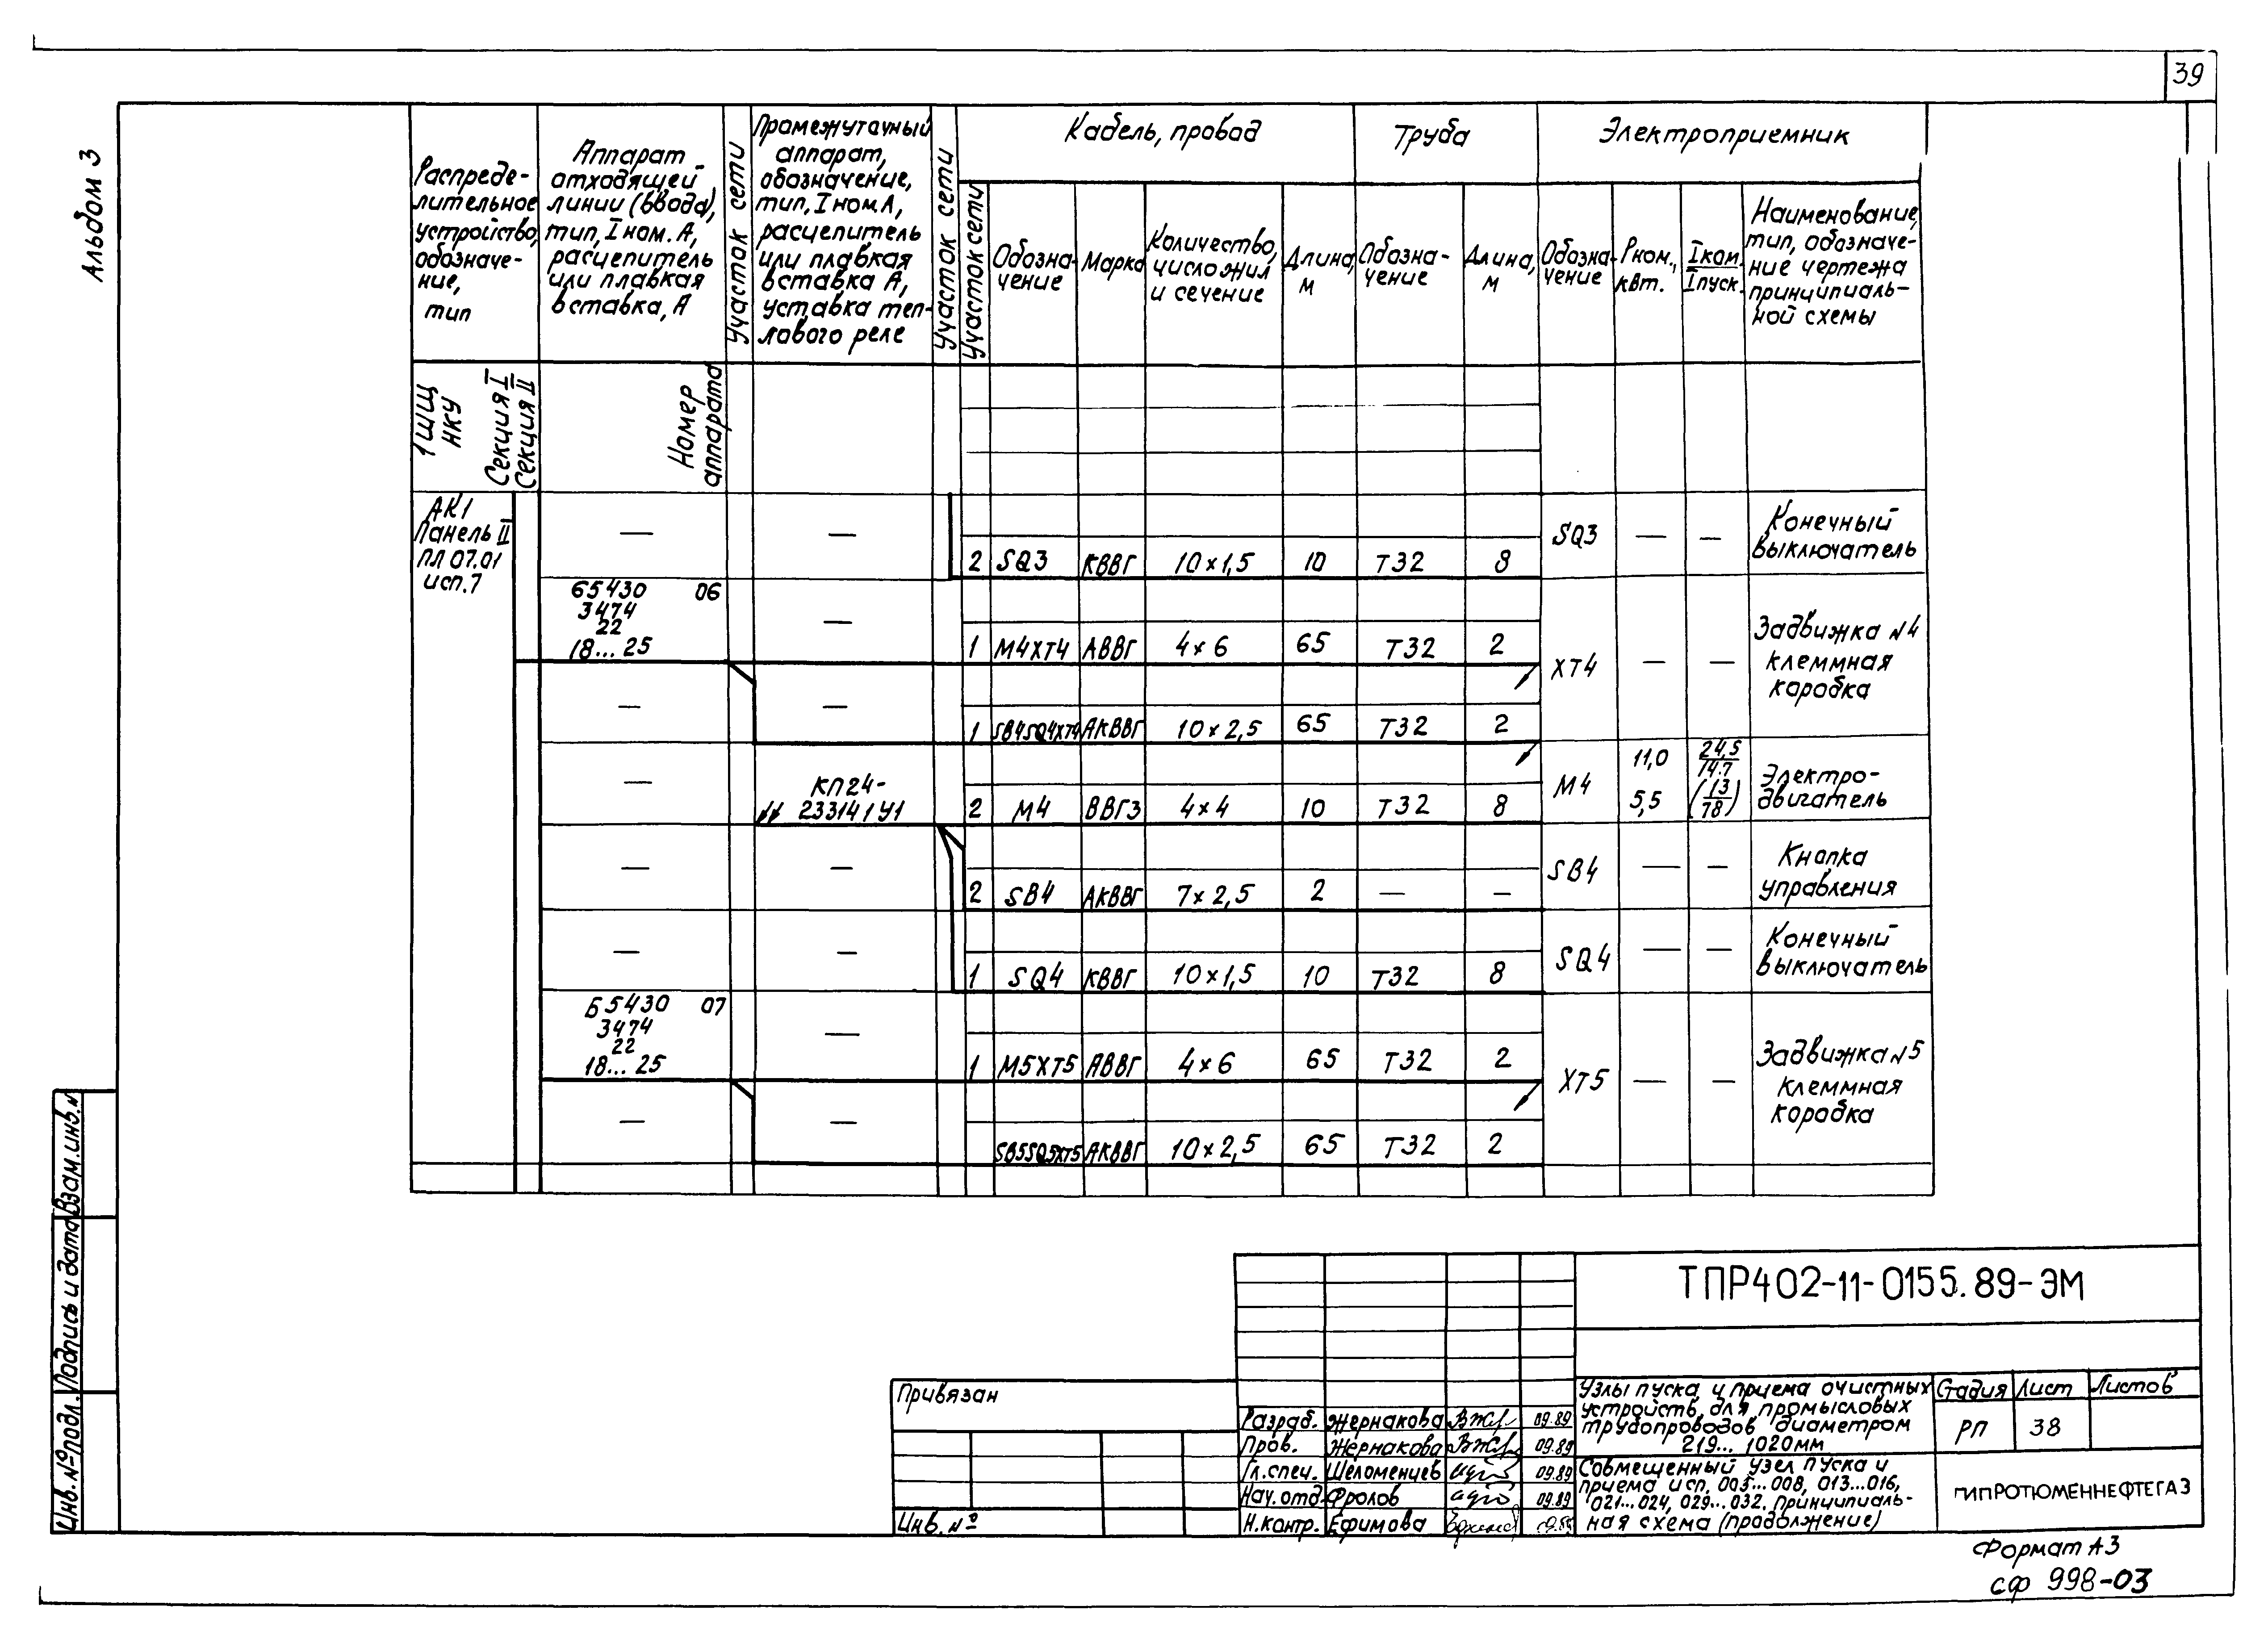 39
Альбом 3
Распреде-
лительное
устройство,
обозначе-
ние,
тип
Аппарат
отходящей
линии (ввода),
тип, Iном. А,
расцепитель
или плавкая
вставка, А
Участок сети
Промежуточный
аппарат,
обозначение,
тип, Iном. А,
расцепитель
или плавкая
вставка А,
уставка теп-
лового реле
Участок сети
Кабель, провод
Труба
Электроприемник
Участок сети
Обозна-
чение
Марка
Количество,
число жил
и сечение
Длина,
м
Обозна-
чение
Длина,
м
Обозна-
чение
Рном.,
квт.
Iном.
Iпуск.
Наименование,
тип, обозначе-
ние чертежа
принципиаль-
ной схемы
1ЩЩ
НКУ
Секция I
Секция II
Номер
аппарата
АК1
Панель II
ПЛ 07.01
исп.7
— — 2 SQ3 КВВГ 10×1,5 10 Т32 8 SQ3 — — Конечный
выключатель
Б5430 06
3474
22
18...25
— 1 М4ХТ4 АВВГ 4×6 65 Т32 2
ХТ4 — — Задвижка N4
клеммная
коробка
— — 1 SB4SQ4XT4 АКВВГ 10×2,5 65 Т32 2
— КП24-
233141У1
2 М4 ВВГЗ 4×4 10 Т32 8
М4 11,0 24,5
14.7
5,5 (13
78)
Электро-
двигатель
— — 2 SB4 АКВВГ 7×2,5 2 — — SB4 — — Кнопка
управления
— — 1 SQ4 КВВГ 10×1,5 10 Т32 8 SQ4 — — Конечный
выключатель
Б5430 07
3474
22
18...25
— 1 М5ХТ5 АВВГ 4×6 65 Т32 2
ХТ5 — — Задвижка N5
клеммная
коробка
— — SB5SQ5XT5 АКВВГ 10×2,5 65 Т32 2
Взам.инв.№
Подпись и дата
Инв. № подл.
ТПР402-11-0155.89-ЭМ
Привязан
Инв. №
Разраб. Жернакова 09.89
Пров. Жернакова 09.89
Гл.спец. Шеломенцев 09.89
Нач.отд. Фролов 09.89
Н.контр. Ефимова 09.89
Узлы пуска и приема очистных
устройств для промысловых
трубопроводов диаметром
219... 1020мм
Стадия Лист Листов
РП 38
Совмещенный узел пуска и
приема исп. 005...008, 013...016,
021...024, 029...032. Принципиаль-
ная схема (продолжение)
ГИПРОТЮМЕННЕФТЕГАЗ
Формат А3
сф 998-03